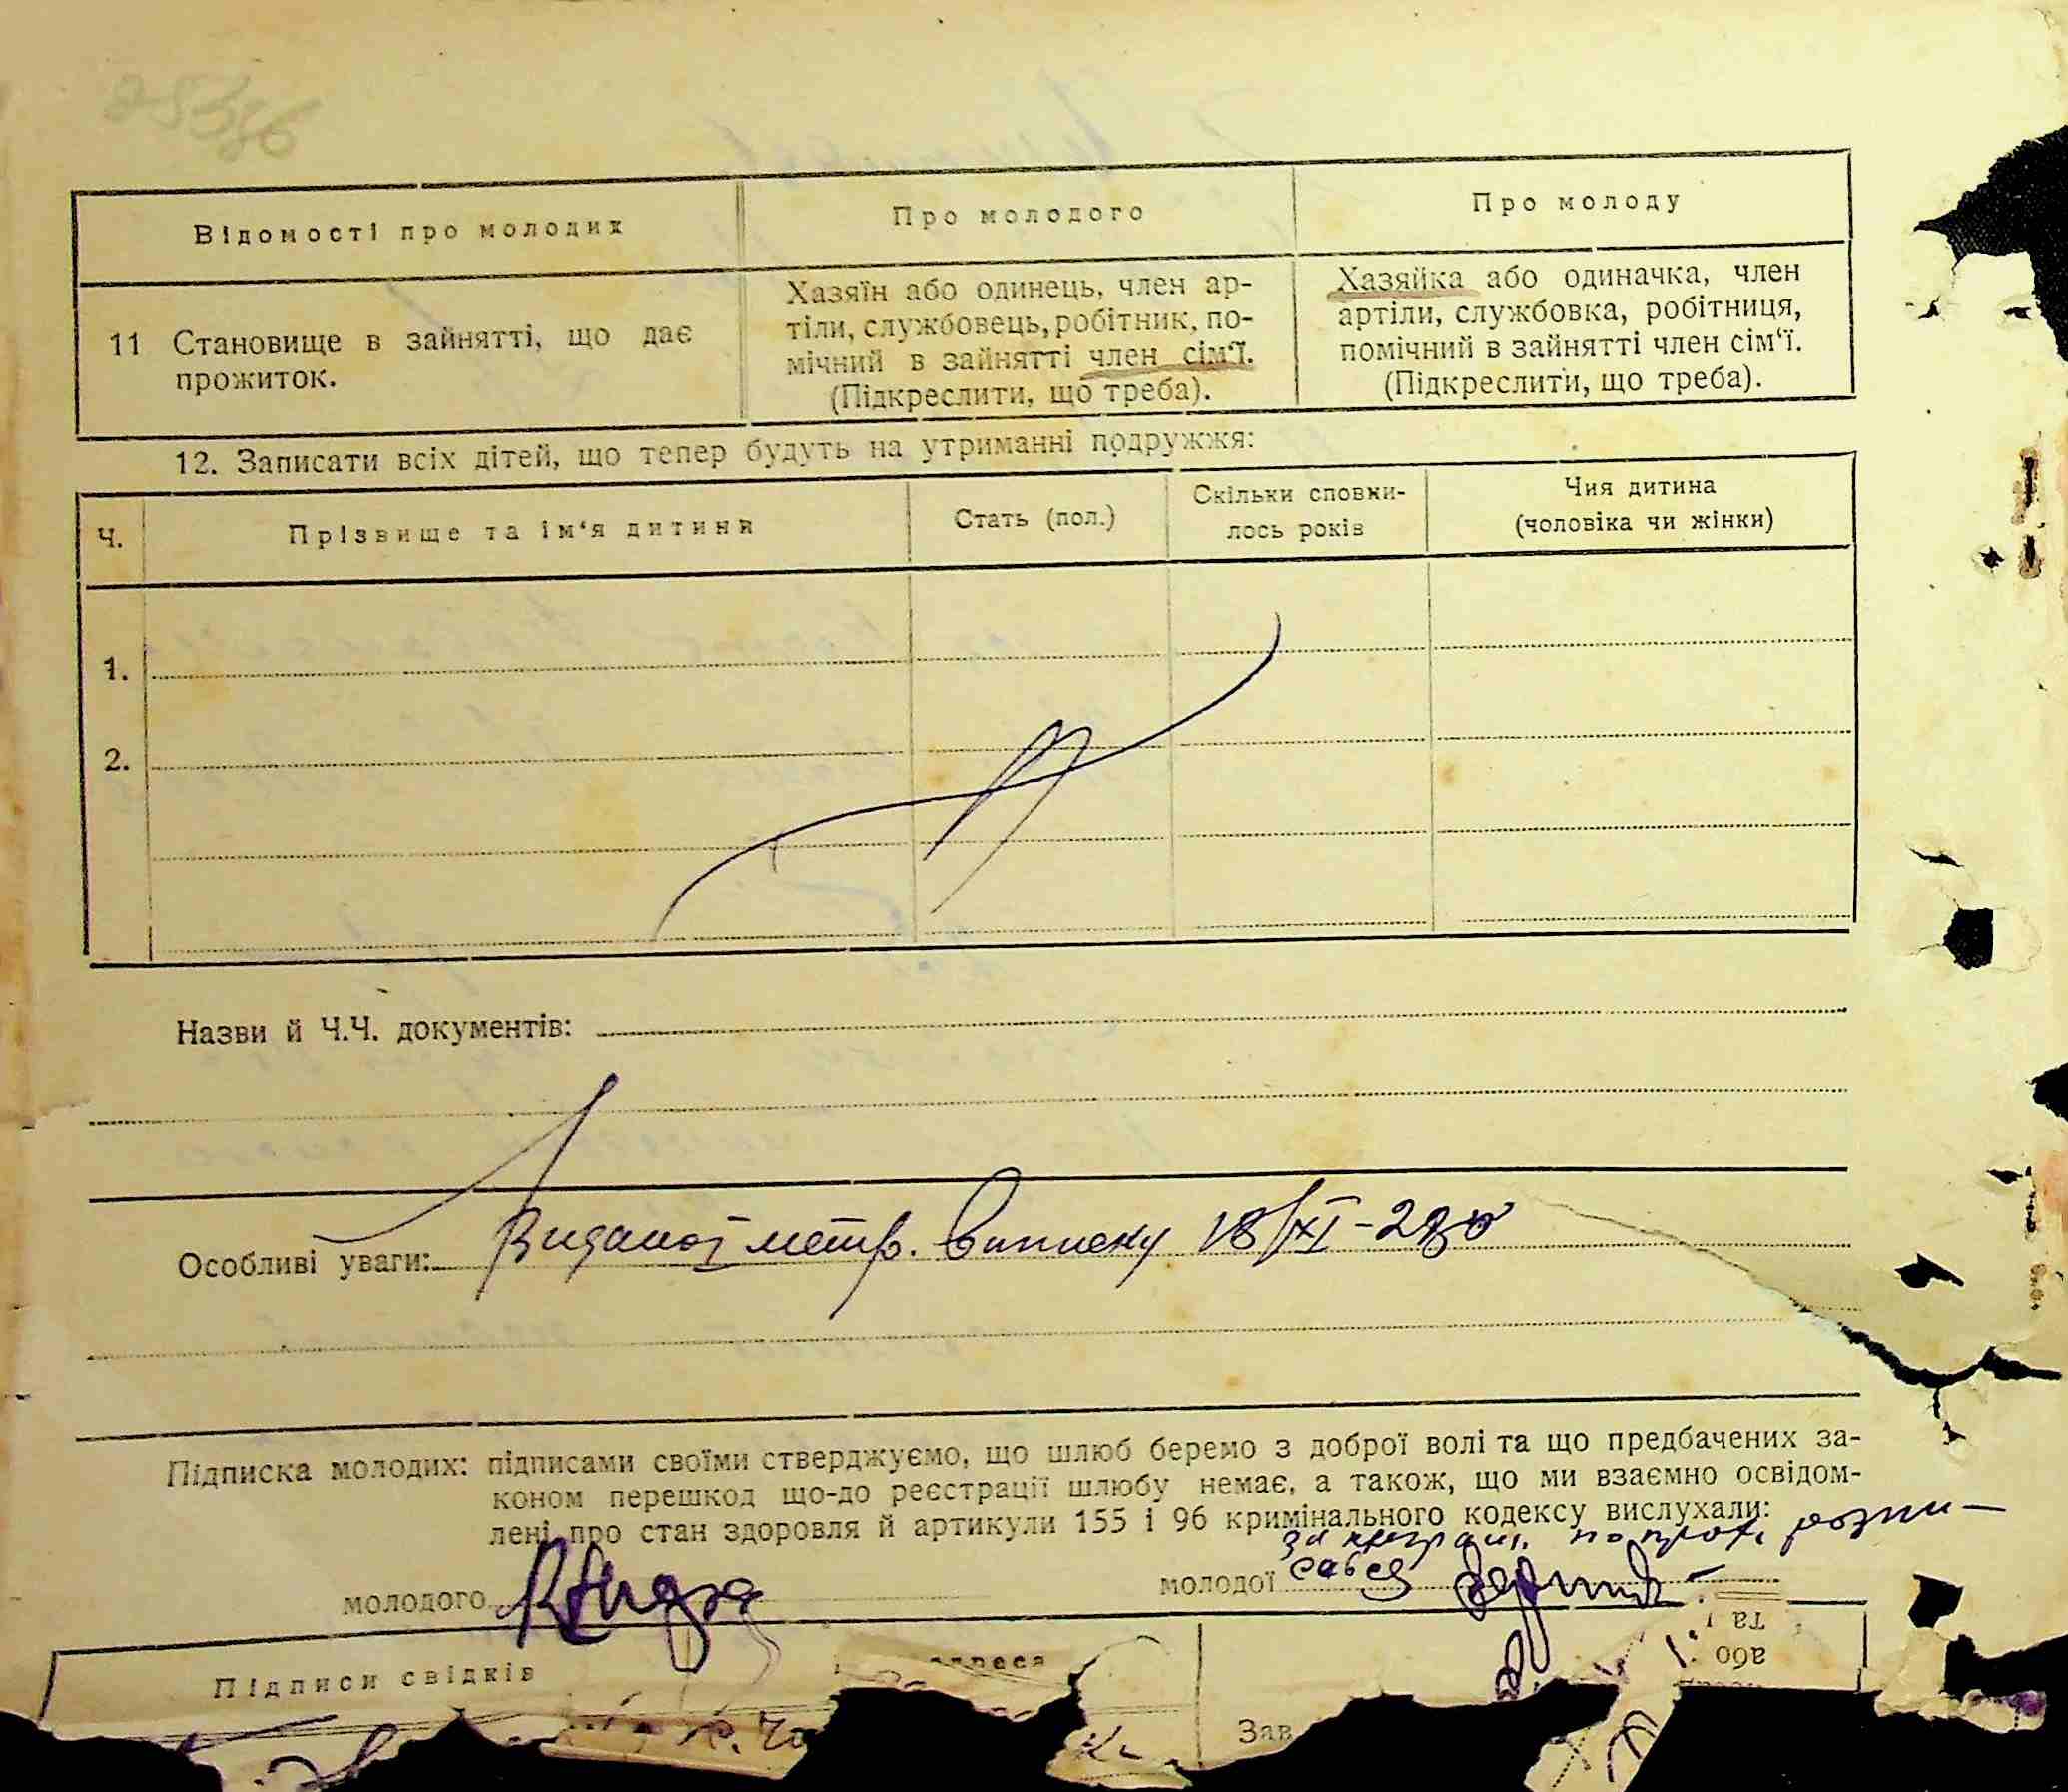 25386
Відомості про молодих
Про молодого
Про молоду
11 Становище в зайнятті, що дає
прожиток.
Хазяїн або одинець, член ар-
тіли, службовець, робітник, по-
мічний в зайнятті член сім‘ї.
(Підкреслити, що треба).
Хазяйка або одиначка, член
артіли, службовка, робітниця,
помічний в зайнятті член сім‘ї.
(Підкреслити, що треба).
12. Записати всіх дітей, що тепер будуть на утриманні подружжя:
Ч.
Прізвище та ім‘я дитини
Стать (пол.)
Скільки сповни-
лось років
Чия дитина
(чоловіка чи жінки)
1.
2.
Назви й Ч.Ч. документів:
Особливі уваги: метр. виписку 18/XI-28р
Підписка молодих: підписами своїми стверджуємо, що шлюб беремо з доброї волі та що предбачених за-
коном перешкод що-до реєстрації шлюбу немає, а також, що ми взаємно освідом-
лені про стан здоровля й артикули 155 і 96 кримінального кодексу вислухали:
за розпи-
молодого
молодої
Підписи свідків
адреса
Зав
та
або